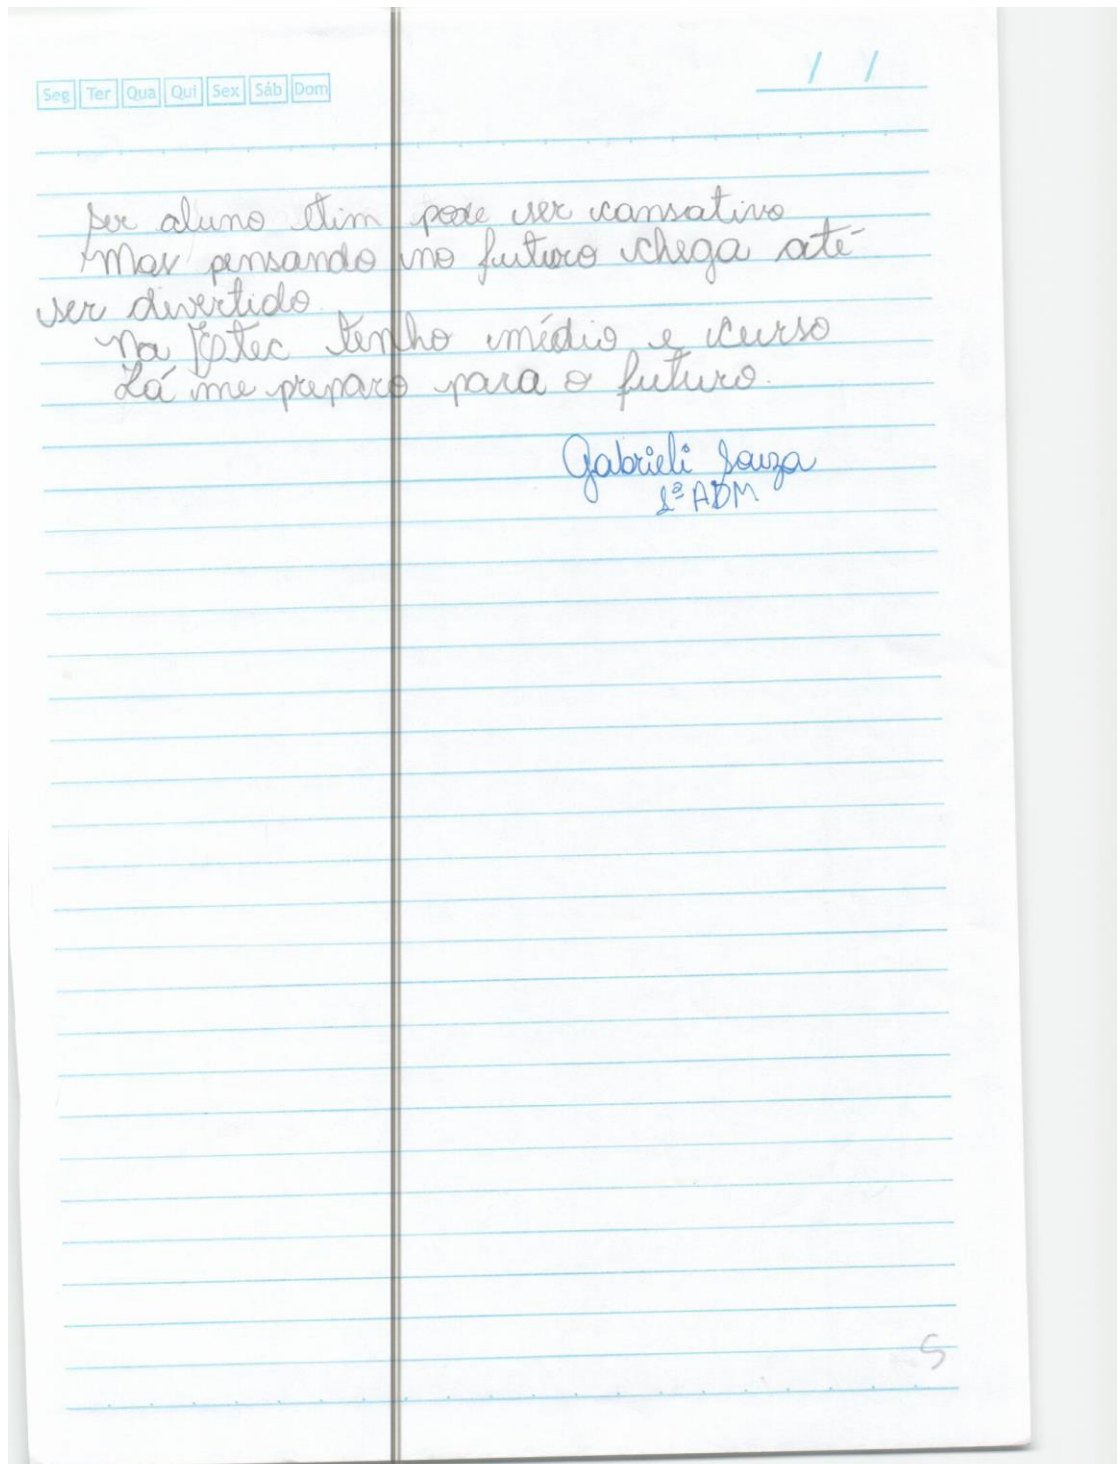 Seg Ter Qua Qui Sex Sáb Dom
/ /
Ser aluno Etim pode ser cansativo
Mas pensando no futuro chega até
ser divertido.
Na Etec tenho médio e curso
Lá me preparo para o futuro.
Gabrieli Souza
1ª ADM
5